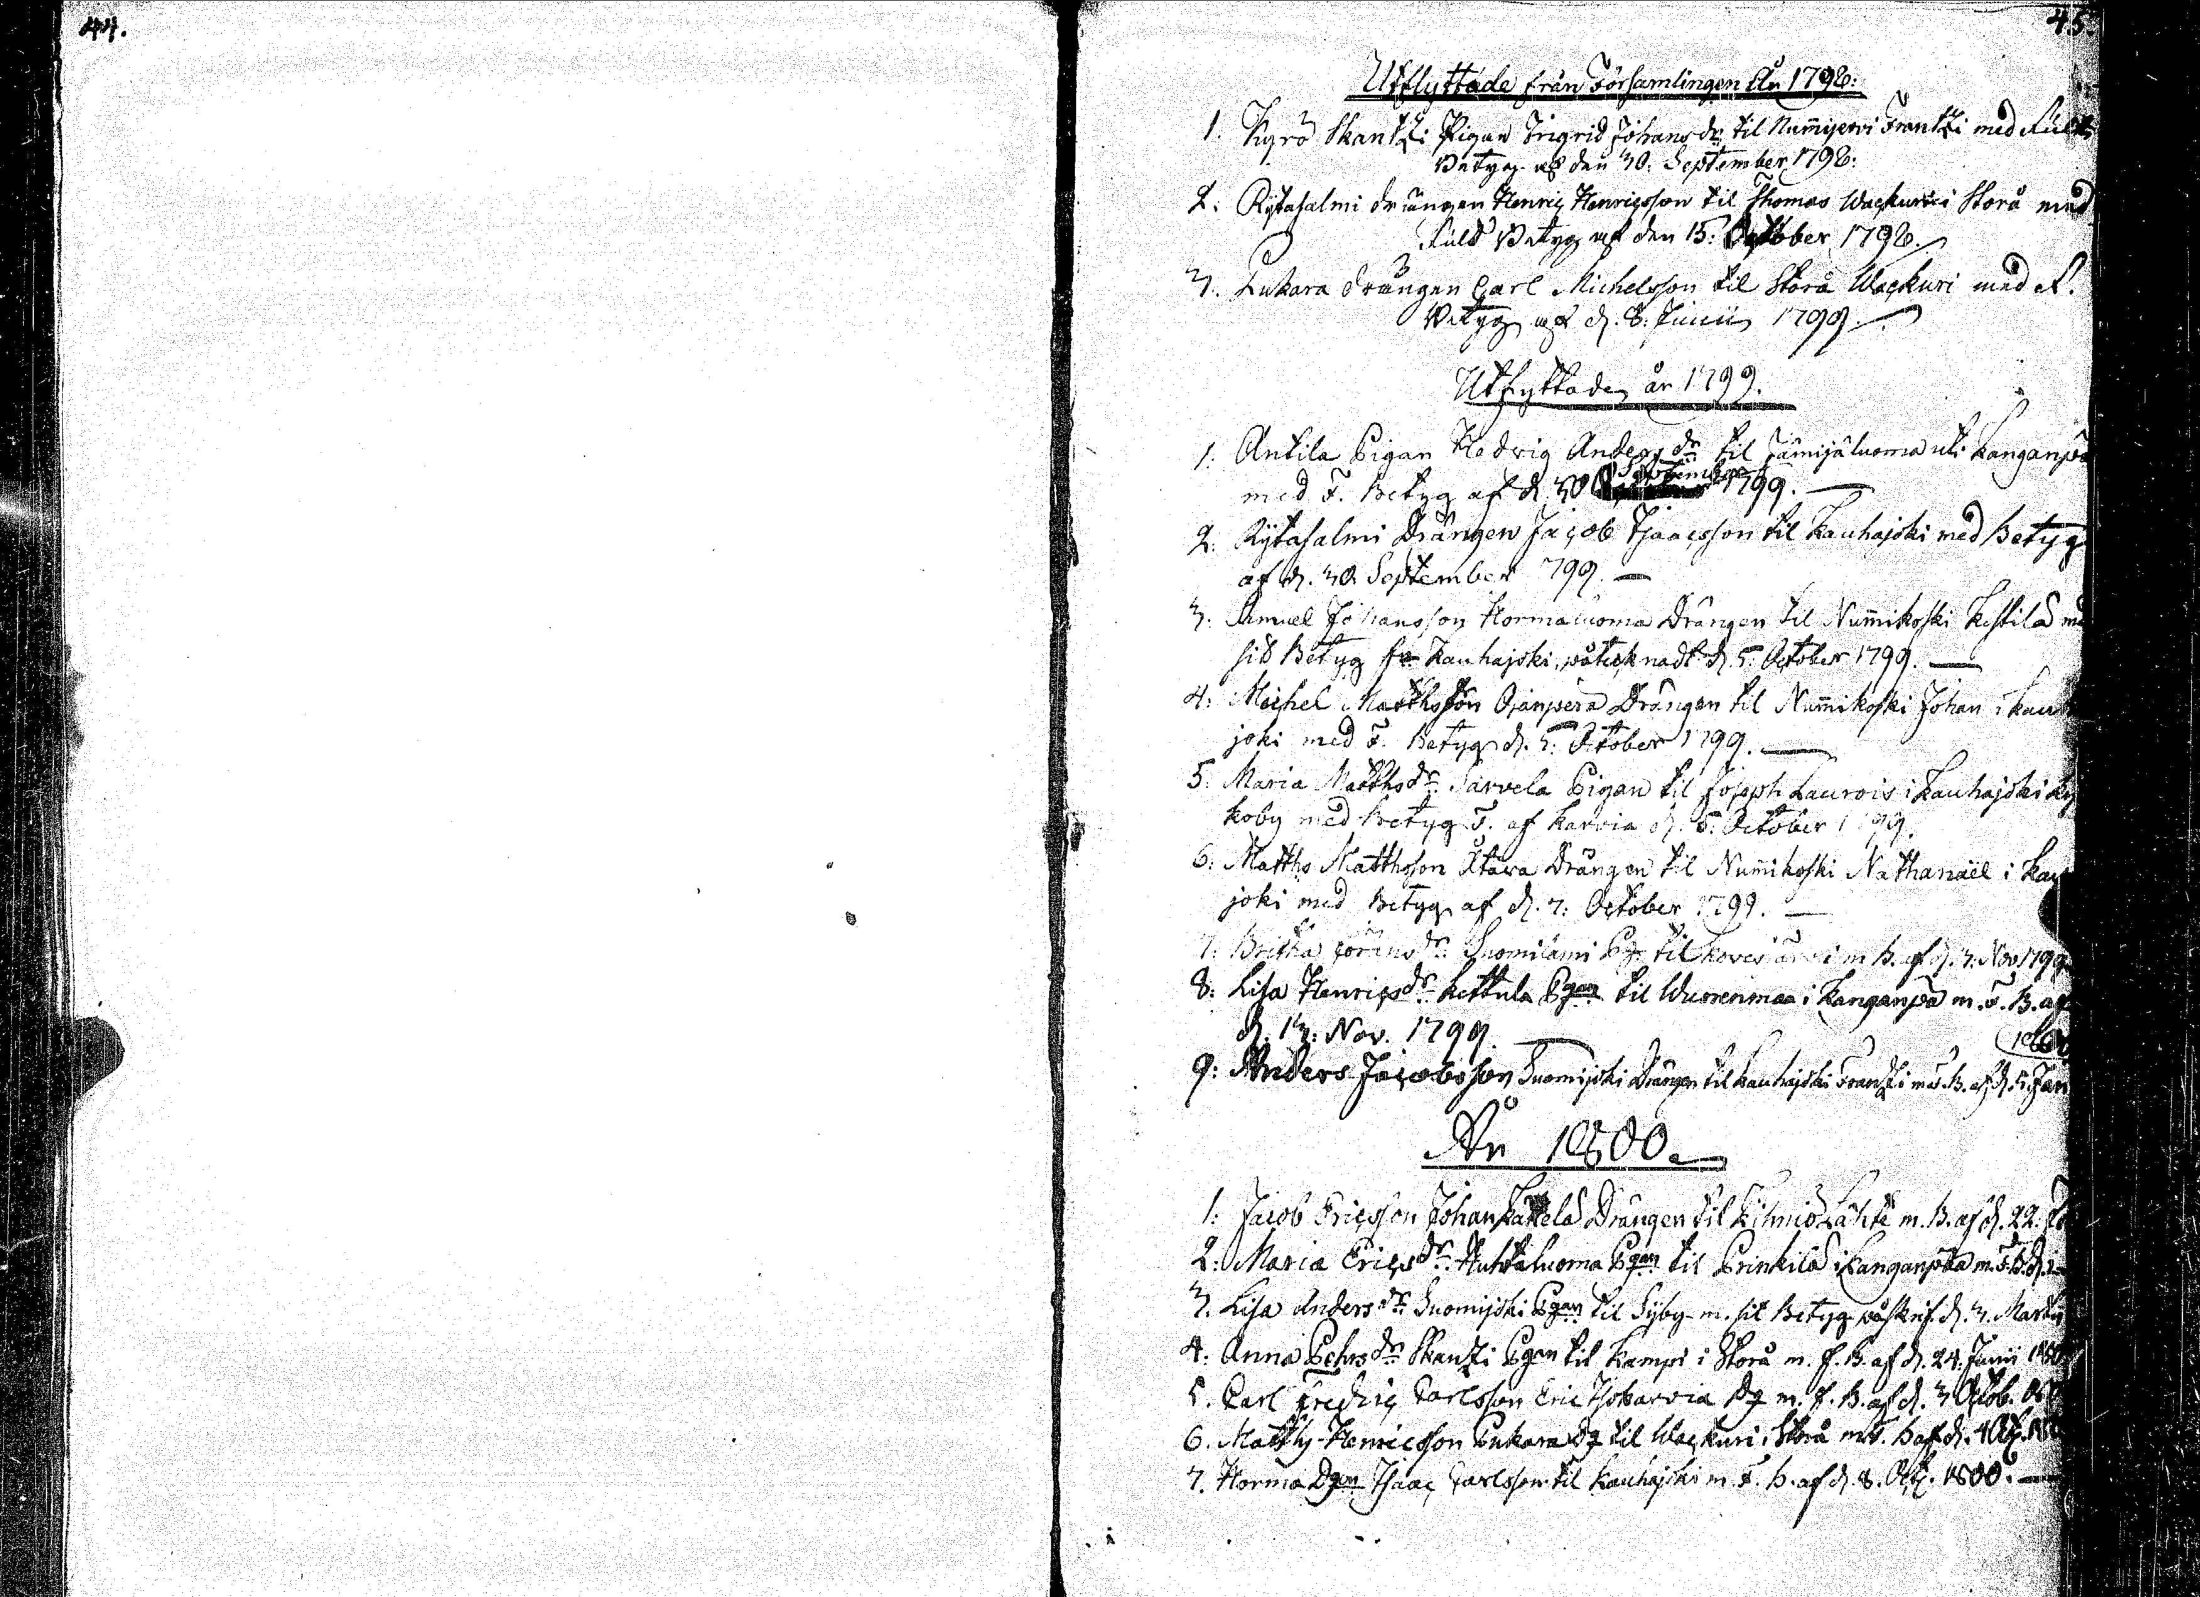 44.
45.
Utflyttade från Församlingen År 1798:
1. Kyrö Skantzi Pigan Ingrid Johansdr til Num̄ijervi Frantzi med Fult
Betyg af den 30: September 1798:
2. Rytasalmi drängen Henric Henricsson til Thomas Wackuri i Storå med
Fuld Betyg af den 15: October 1798.
3. Lukara drängen Carl Michelsson til Storå Wackuri med F.
Betyg af d. 8: Junii 1799.
Utflyttade år 1799.
1: Antila Pigan Hedvig Andersdr til Jämijäluoma uti Kanganpä
med F. Betyg af d. 30 September 1799.
2: Rytasalmi Drängen Jacob Isaacsson til Kauhajoki med Betyg
af d. 30 September 799.
3: Samuel Johansson Hormaluoma Drängen til Num̄ikoski Kestilä
sit Betyg fr Kauhajoki, påteknadt d. 5: October 1799.
4: Michel Matthsson Ojanperä Drängen til Num̄ikoski Johan i Kau
joki med F. Betyg d. 5: October 1799.
5: Maria Matthsdr Sarvela Pigan til Joseph Laurois i Kauhajoki
koby med Betyg F. af Karvia d. 5: October 1799.
6: Matths Matthsson Ätäwä Drängen til Num̄ikoski Nathanaël i Kau
joki med Betyg af d. 7: October 1799.
7: Britha Göransdr Suomilami Pg til m B. af d. 7: Nov 1799
8: Lisa Henricsdr Kettula Pgan til Wuorenmaa i Kanganpä m. F. B. af
d. 13: Nov. 1799.
9: Anders Jacobsson Suomijoki Drängen til Kauhajoki Frantzi m F. B. af d. 5 Jan
År 1800.
1: Jacob Ericsson Johan Kattelä Drängen til Kihniö Lähte m. B. af d. 22:
2: Maria Ericsdr Huhtaluoma Pgan til Prinkilä i Kanganpä m. F. B. d.
3. Lisa Andersdr Suomijoki Pgan til Syby m. sit Betyg påskrif. d. 3. Martii
4: Anna Pehrsdr Skantzi Pgan til Kampi i Storå m. F. B. af d. 24. Junii 180
5. Carl Fredric Carlsson Eric Isokarvia Dg m. F. B. af d. 3 Octob.
6. Matths Henricsson Lukara Dg til Wackuri i Storå m F. B af d. 4 Oct.
7. Horma Dgan Isaac Carlsson til Kauhajoki m. F. B. af d. 8. Oct. 1800.